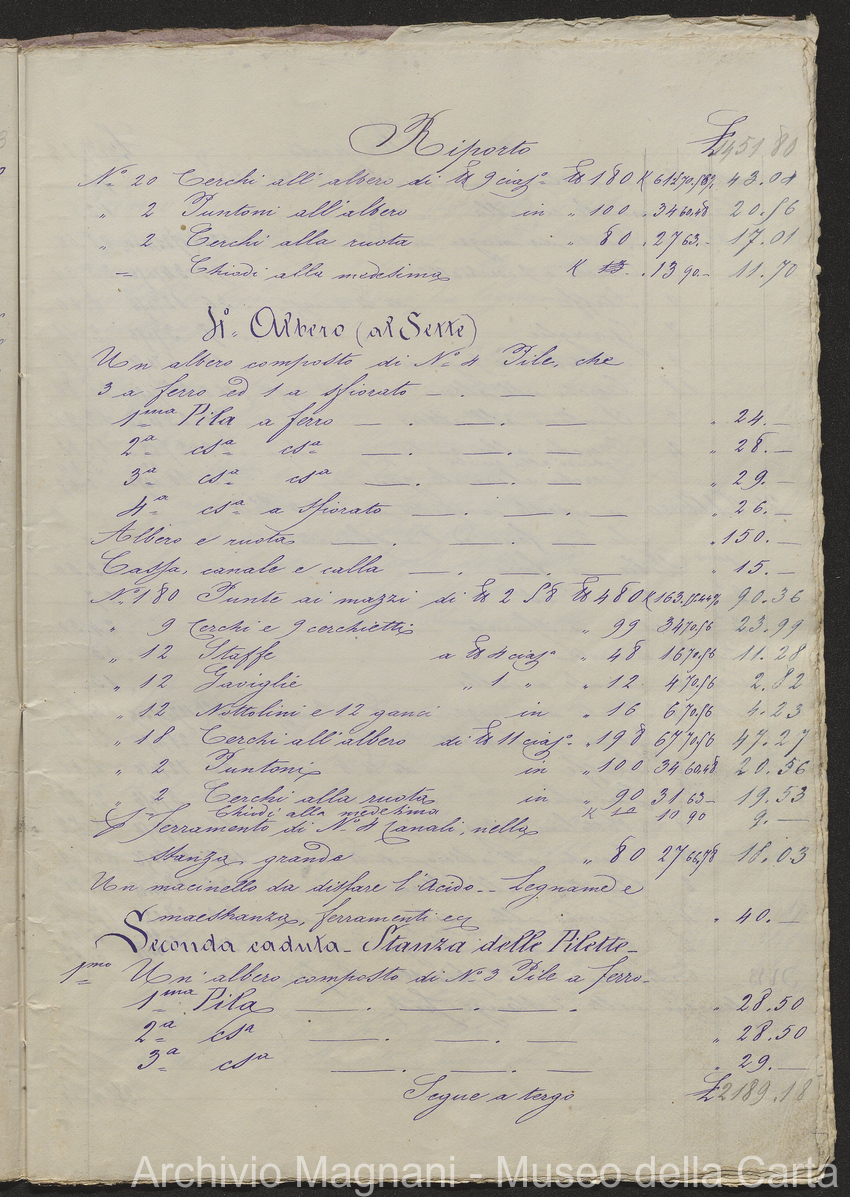 Riporto £ 1451.80
N.° 20 Cerchi all'albero di ℔ 9 ciasº ℔ 180 K 61 43.04
„ 2 Puntoni all'albero in „ 100 „ 34 60,48 20.56
„ 2 Cerchi alla ruota „ 80 „ 27 63.- 17.01
= Chiodi alla medesima K 13 . 13 90.- 11.70
4º. Albero (al Sette)
Un albero composto di N.° 4 Pile, che
3 a ferro ed 1 a sfiorato — . —
1ma Pila a ferro — . — . — „ 24.—
2a csa csa — . — . — „ 28.—
3a csa csa — . — . — „ 29.—
4a csa a sfiorato — . — . — „ 26.—
Albero e ruota — . — . — „ 150.—
Cassa, canale e calla — . — . — „ 15.—
N.° 180 Punte ai mazzi di ℔ 2 ℔ 480 K 163. 90.36
„ 9 Cerchi e 9 cerchietti „ 99 34 70,56 23.99
„ 12 Staffe a ℔ 4 ciasº „ 48 16 70,56 11.28
„ 12 Gaviglie „ 1 „ „ 12 4 70,56 2.82
„ 12 Nottolini e 12 ganci in „ 16 6 70,56 4.23
„ 18 Cerchi all'albero di ℔ 11 ciasº „ 198 67 70,56 47.27
„ 2 Puntoni in „ 100 34 60,48 20.56
„ 2 Cerchi alla ruota in „ 90 31 63— 19.53
= Chiodi alla medesima K 10 10 90 9.—
Ferramento di N.° 4 Canali, nella
stanza grande „ 80 27 66,78 18.03
Un macinello da disfare l'Acido -- Legname e
maestranza, ferramenti „ 40.—
Seconda caduta - Stanza delle Pilette -
1mo Un' albero composto di N.° 3 Pile a ferro-
1ma Pila — . — . — . „ 28.50
2a csa — . — . — „ 28.50
3a csa — . — . — „ 29.—
Segue a tergo £ 2189.18
Archivio Magnani - Museo della Carta